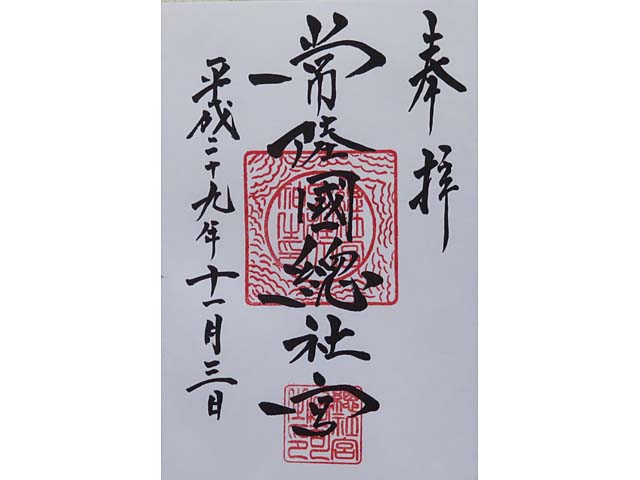 奉拝
常陸國總社宮
平成二十九年十一月三日